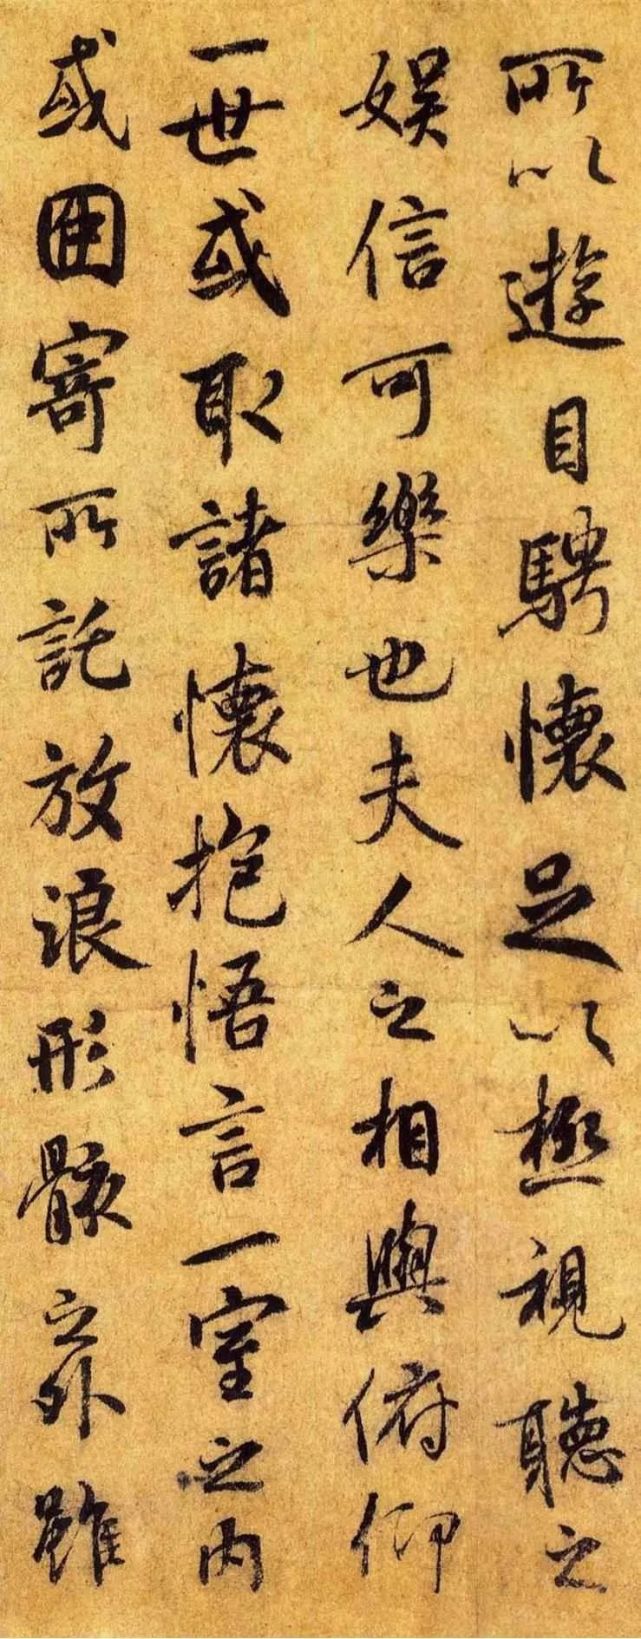 所以遊目騁懷足以極視聽之
娛信可樂也夫人之相與俯仰
一世或取諸懷抱悟言一室之內
或因寄所託放浪形骸之外雖